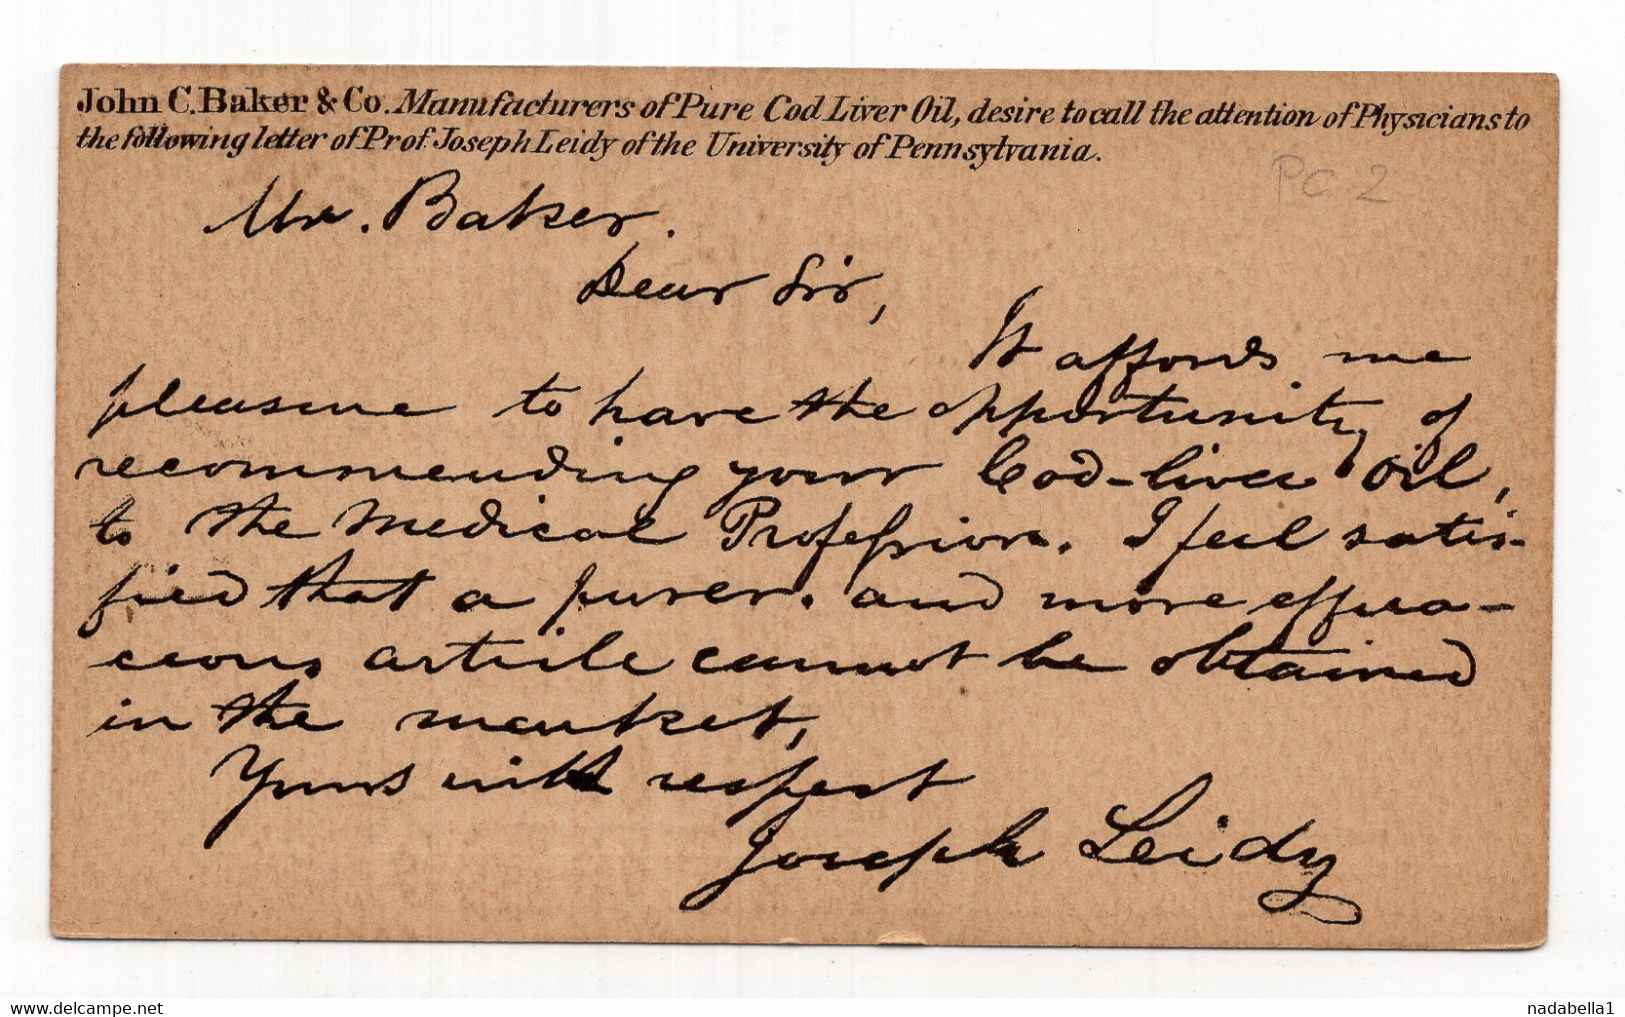 John C. Baker & Co. Manufacturers of Pure Cod Liver Oil, desire to call the attention of Physicians to
the following letter of Prof. Joseph Leidy of the University of Pennsylvania.
PC 2
Mr. Baker.
Dear Sir,
It affords me
pleasure to have the opportunity of
recommending your Cod-liver Oil,
to the Medical Profession. I feel satis-
fied that a purer, and more effica-
cious article cannot be obtained
in the market,
Yours with respect
Joseph Leidy
www.delcampe.net
nadabella1